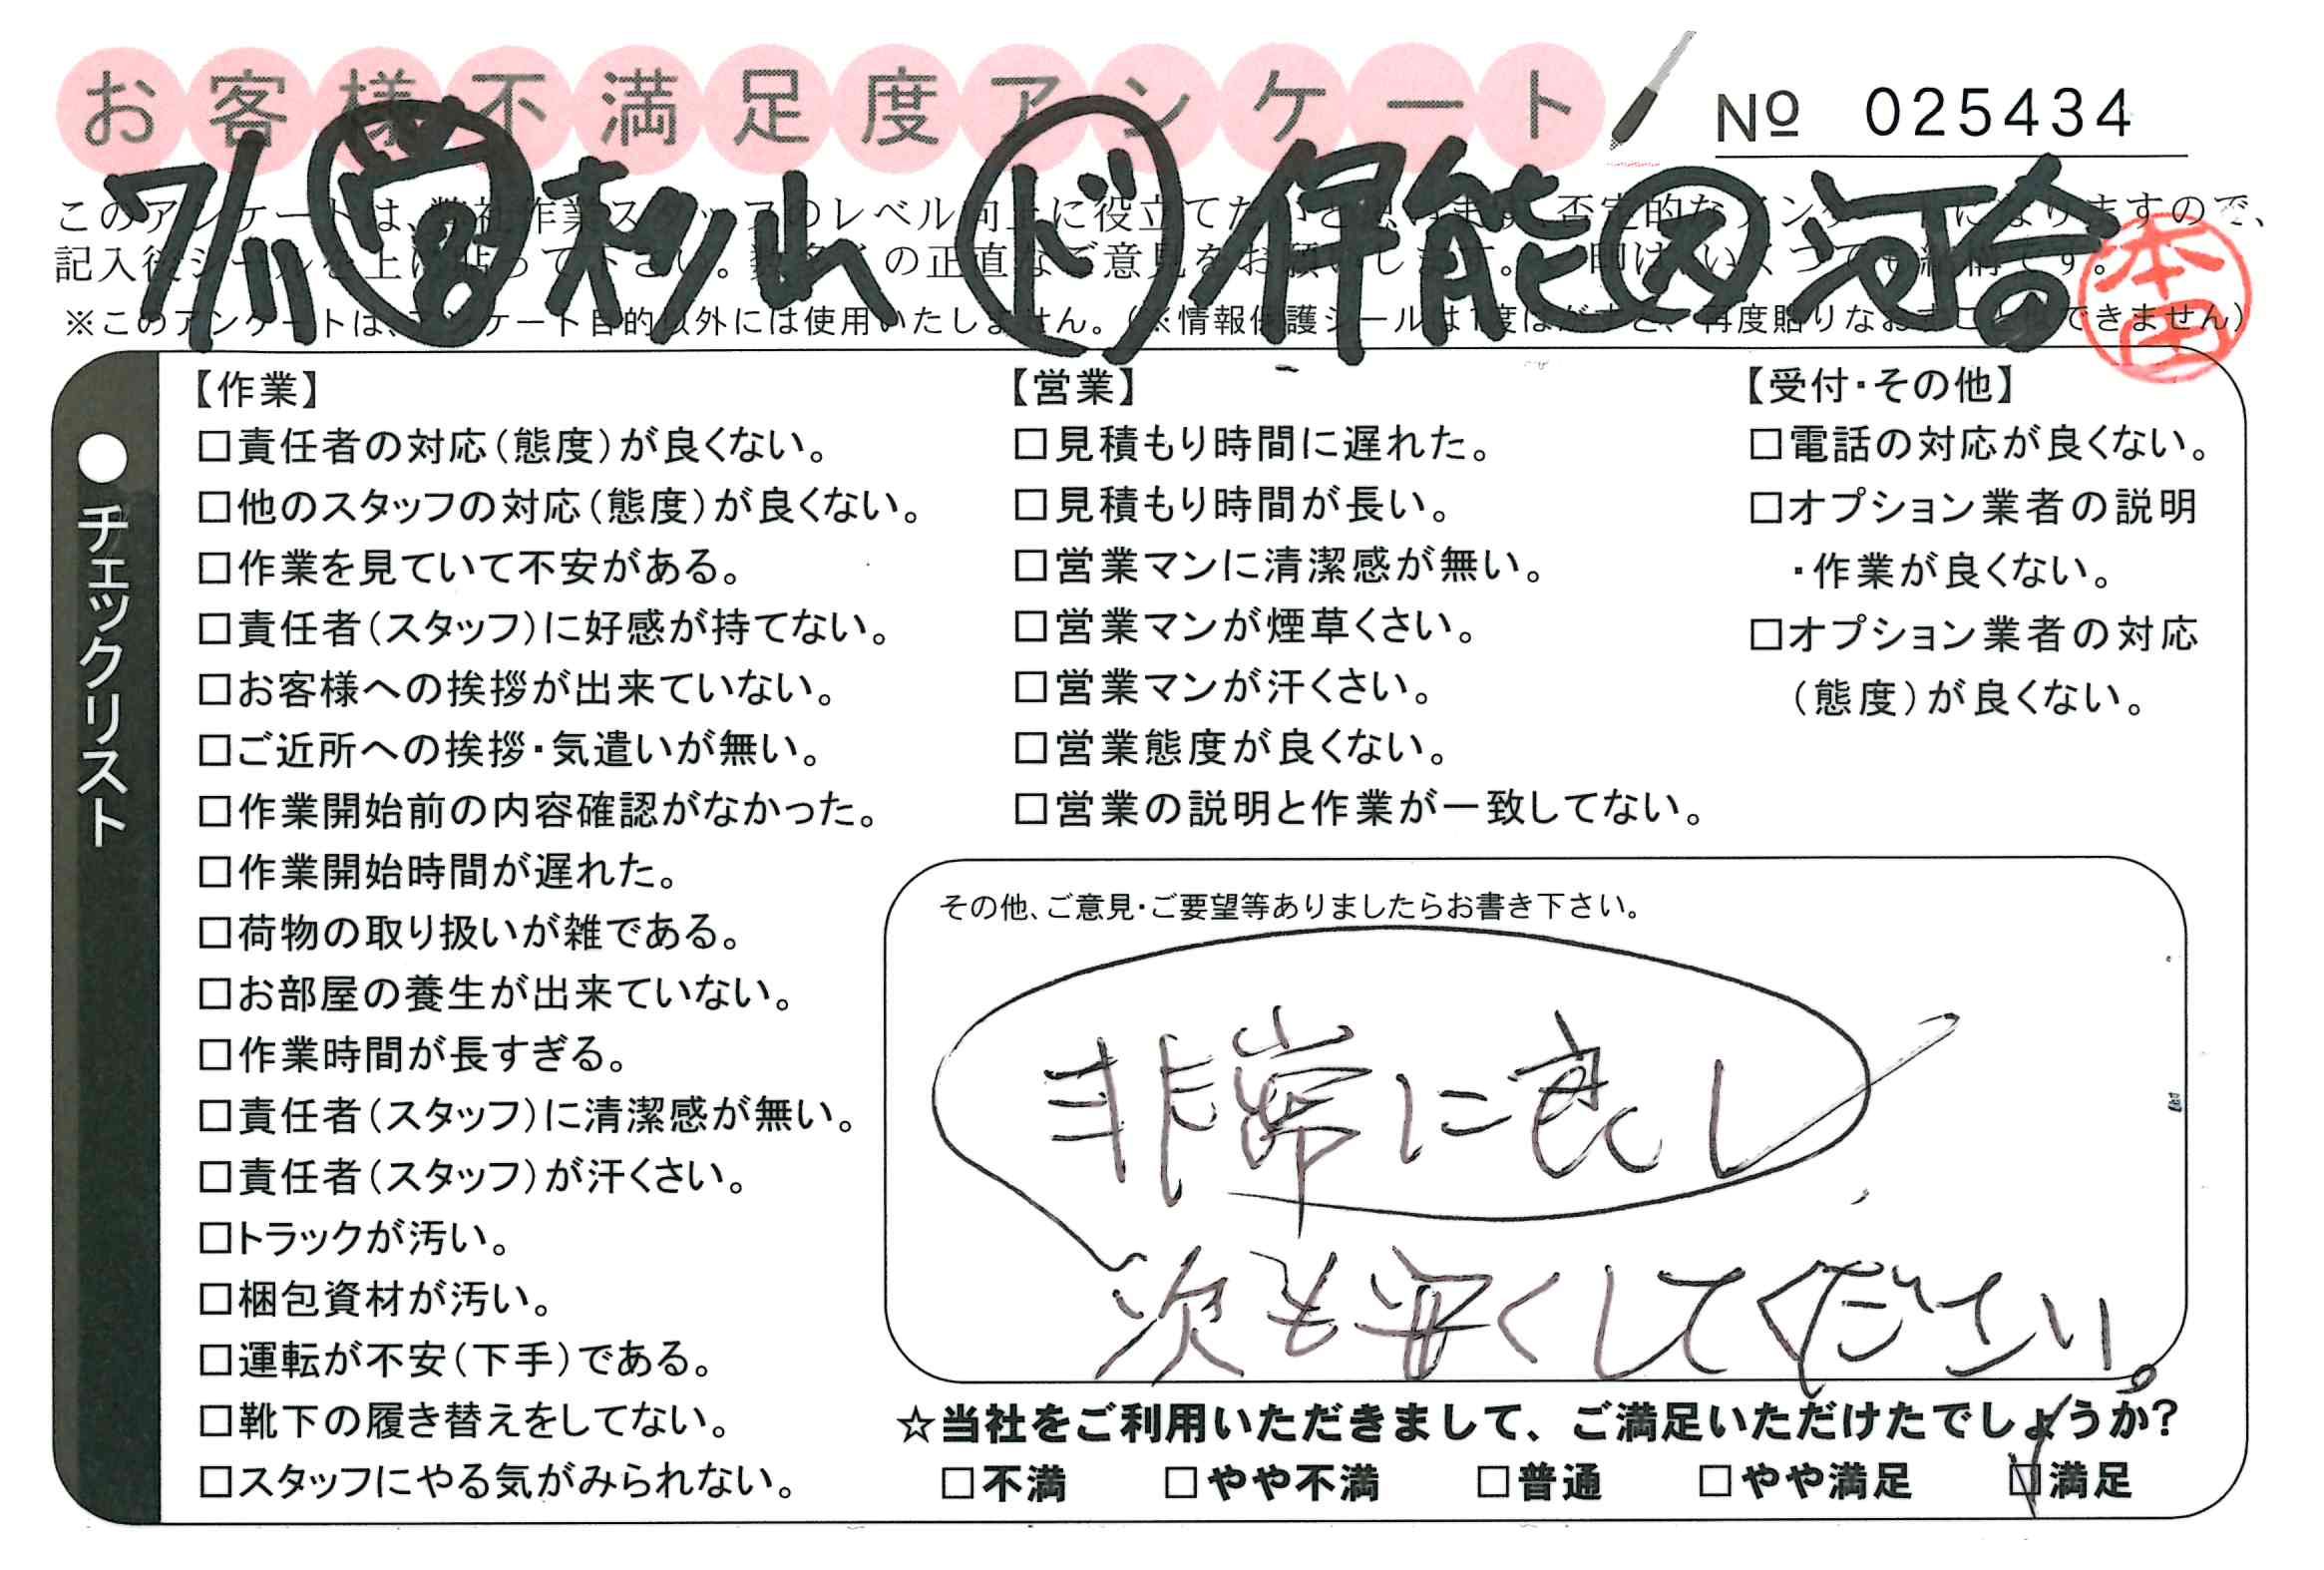 お客様不満足度アンケート
№ 025434
7/11 営 杉山 ド 伊能 ス 河合
このアンケートは、弊社作業スタッフのレベル向上に役立てたいと思います。否定的なアンケートになりますので、
記入後シールを上に貼って下さい。数多くの正直なご意見をお願いします。
※このアンケートは、アンケート目的以外には使用いたしません。(※情報保護シールは1度はがすと、再度貼りなおすことはできません)
本田
●チェックリスト
【作業】
□責任者の対応(態度)が良くない。
□他のスタッフの対応(態度)が良くない。
□作業を見ていて不安がある。
□責任者(スタッフ)に好感が持てない。
□お客様への挨拶が出来ていない。
□ご近所への挨拶・気遣いが無い。
□作業開始前の内容確認がなかった。
□作業開始時間が遅れた。
□荷物の取り扱いが雑である。
□お部屋の養生が出来ていない。
□作業時間が長すぎる。
□責任者(スタッフ)に清潔感が無い。
□責任者(スタッフ)が汗くさい。
□トラックが汚い。
□梱包資材が汚い。
□運転が不安(下手)である。
□靴下の履き替えをしてない。
□スタッフにやる気がみられない。
【営業】
□見積もり時間に遅れた。
□見積もり時間が長い。
□営業マンに清潔感が無い。
□営業マンが煙草くさい。
□営業マンが汗くさい。
□営業態度が良くない。
□営業の説明と作業が一致してない。
【受付・その他】
□電話の対応が良くない。
□オプション業者の説明
・作業が良くない。
□オプション業者の対応
(態度)が良くない。
その他、ご意見・ご要望等ありましたらお書き下さい。
非常に良し
次も安くしてください。
☆当社をご利用いただきまして、ご満足いただけたでしょうか?
□不満 □やや不満 □普通 □やや満足 ☑満足